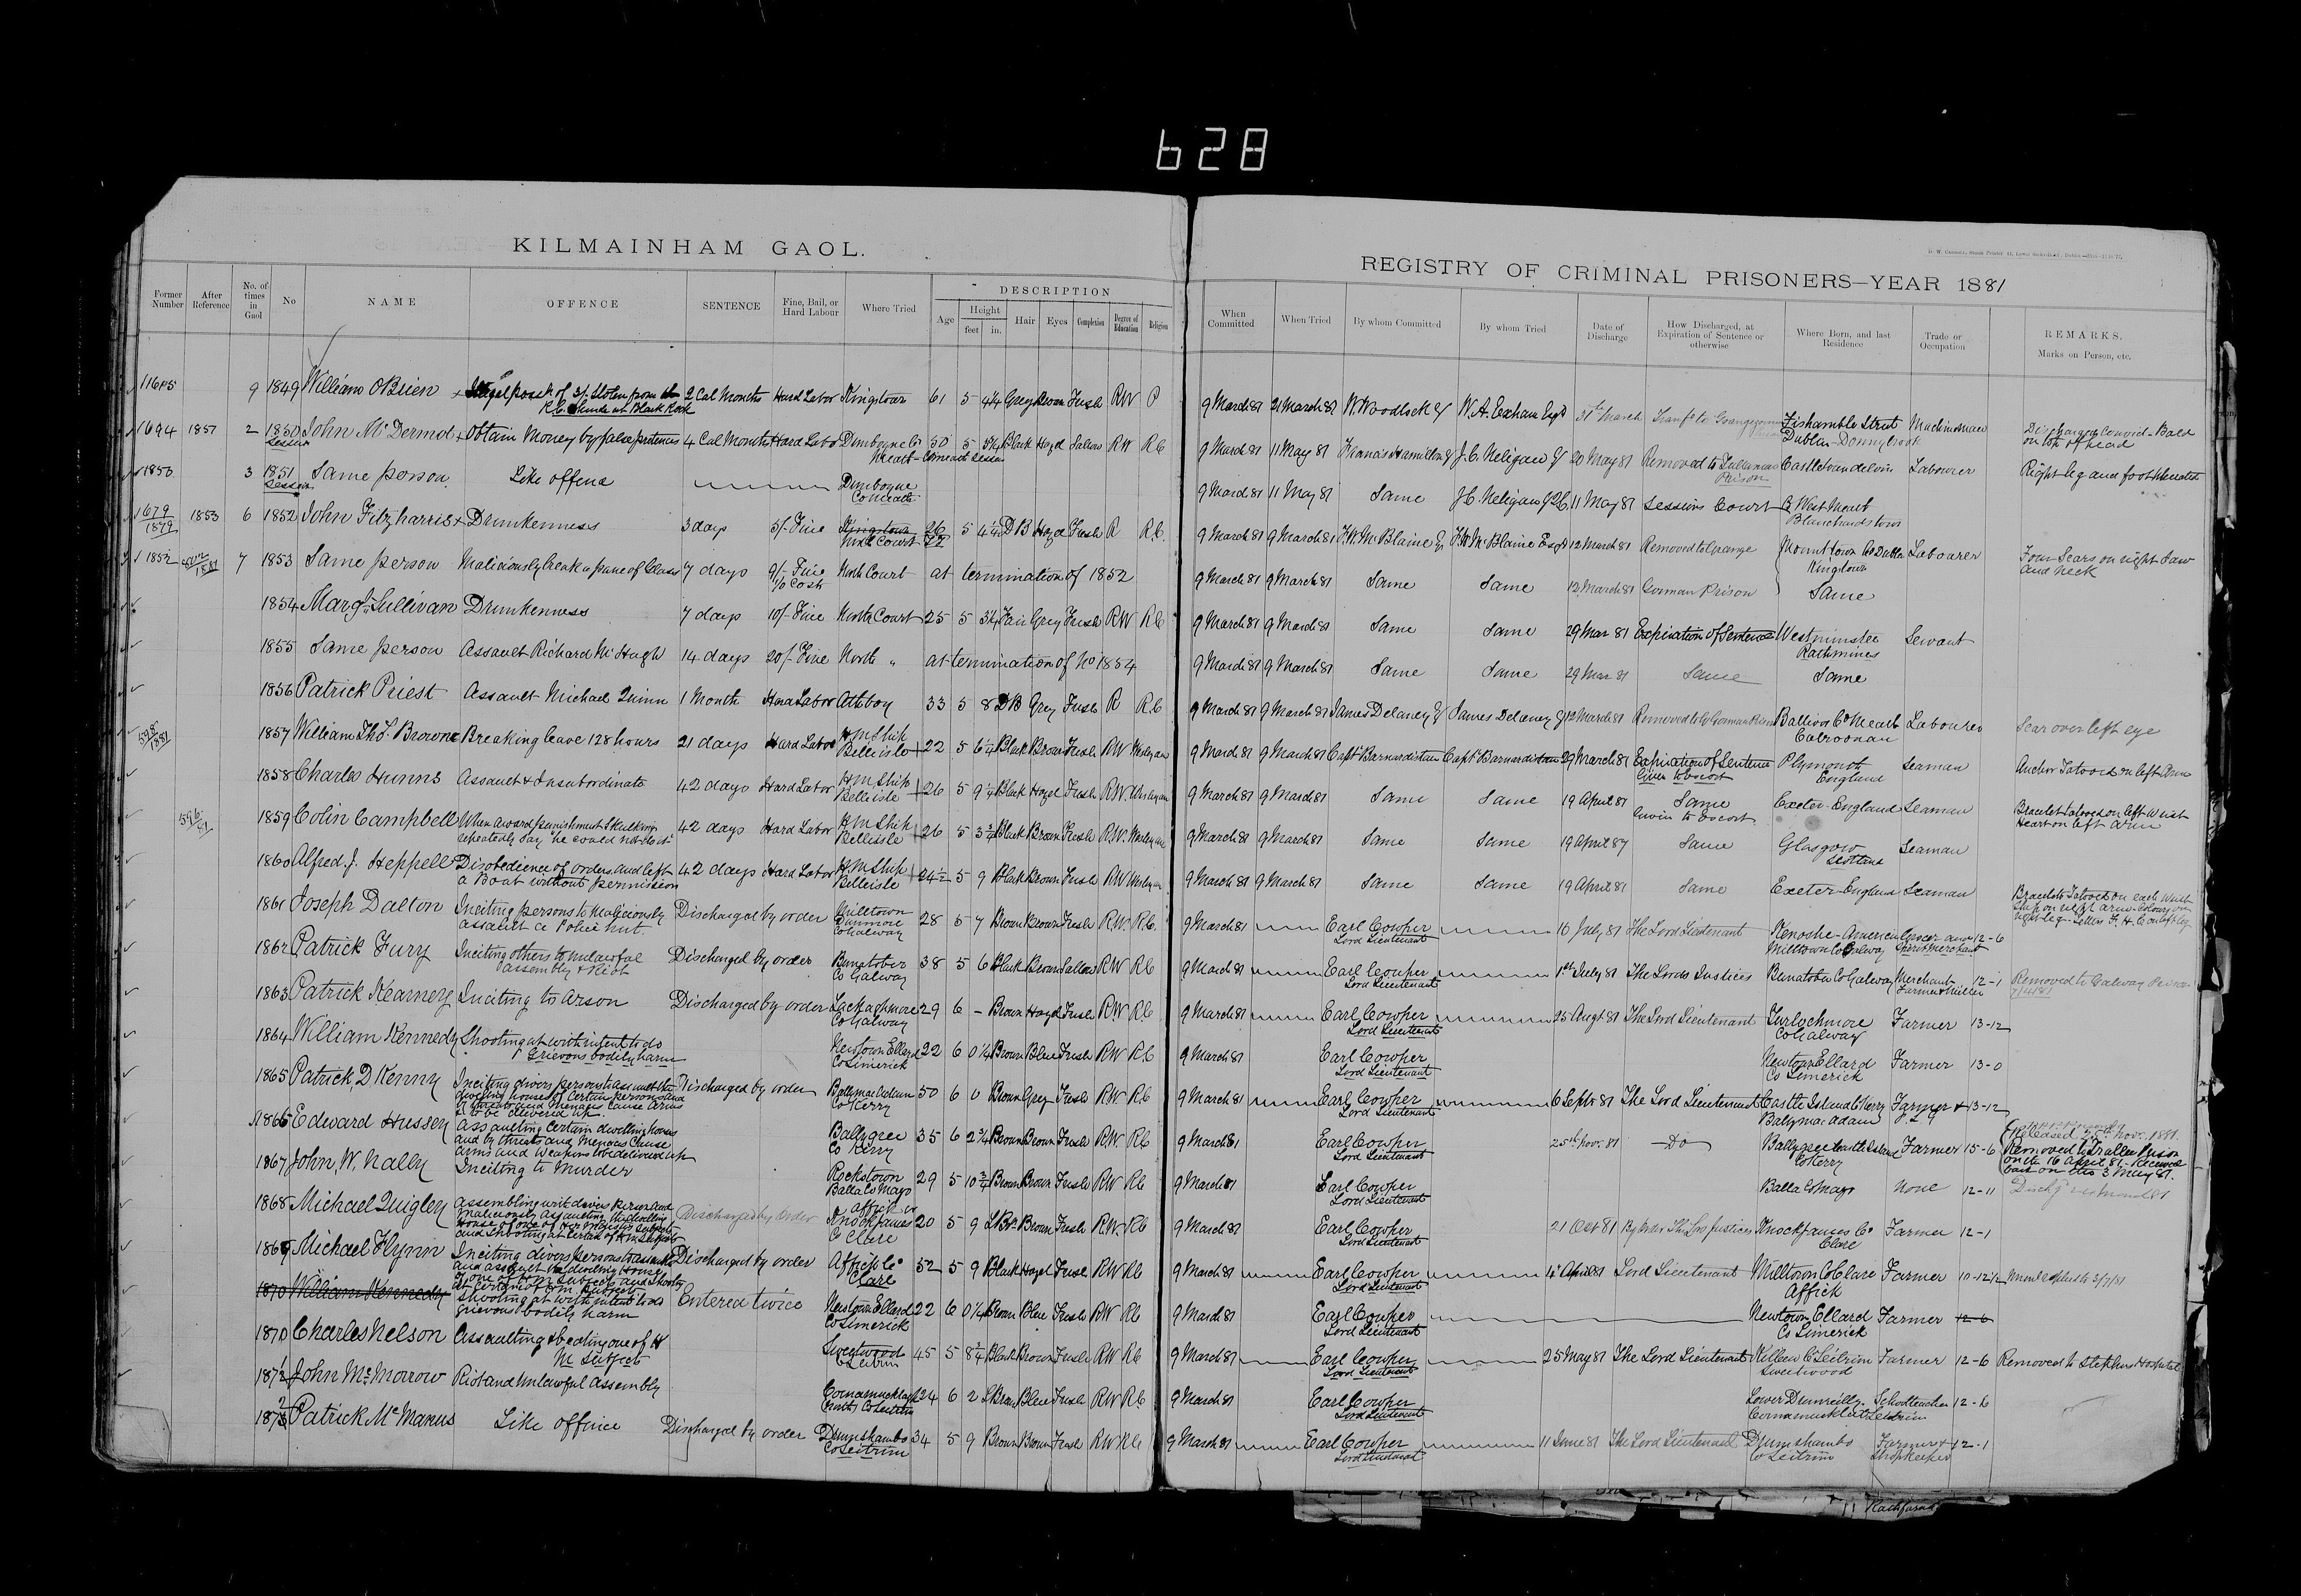 628
KILMAINHAM GAOL.
REGISTRY OF CRIMINAL PRISONERS—YEAR 1881
Former Number
After Reference
No. of times in Gaol
No
NAME
OFFENCE
SENTENCE
Fine, Bail, or Hard Labour
Where Tried
DESCRIPTION
Age
Height
feet in.
Hair
Eyes
Complexion
Degree of Education
Religion
When Committed
When Tried
By whom Committed
By whom Tried
Date of Discharge
How Discharged, at Expiration of Sentence or otherwise
Where Born, and last Residence
Trade or Occupation
REMARKS.
Marks on Person, etc.
9 1849 William OBrien 2 Cal Months Hard Labor Kingstown 61 5 4¼ Grey Brown Fresh RW P 9 March 81 21 March 81 W. Woodlock W. A. Exham Esqr 31st March Fishamble Street Dublin - Donnybrook
1694 1851 2 1850 John McDermot Obtain Money by false pretences 4 Cal Months Hard Labor Dunboyne Co Meath 50 5 Black Hazel Sallow RW RC 9 March 81 11 May 81 Francis Hamilton J. C. Neligan 20 May 81 Removed to Tullamore Prison Castletowndelvin Labourer Right leg and foot
1850 3 1851 Same person Like offence Dunboyne Co Meath 9 March 81 11 May 81 Same J. C. Neligan QC 11 May 81 Sessions Court Co West Meath Blanchardstown
1679/1879 1853 6 1852 John Fitzharris Drunkenness 3 days 5/- Fine North Court 26 5 4¼ DB Hazel Fresh R RC. 9 March 81 9 March 81 12 March 81 Removed to Grange Mounttown Co Dublin Kingstown Labourer Four Scars on right Jaw and neck
1852 7 1853 Same person Maliciously break a pane of Glass 7 days 9/- Fine 1/0 Cost North Court at termination of 1852 9 March 81 9 March 81 Same Same 12 March 81 Gorman Prison Same
1854 Margt Sullivan Drunkenness 7 days 10/- Fine North Court 25 5 3¼ Fair Grey Fresh RW RC 9 March 81 9 March 81 Same Same 29 Mar 81 Expiration of Sentence Westminster Rathmines Servant
1855 Same person Assault Richard McHugh 14 days 20/- Fine North " at termination of No 1854 9 March 81 9 March 81 Same Same 29 Mar 81 Same Same
1856 Patrick Priest Assault Michael Quinn 1 Month Hard Labor Athboy 33 5 8 DB Grey Fresh R RC 9 March 81 9 March 81 James Delaney James Delaney 12 March 81 Removed to Gr Gorman Prison Ballivor Co Meath Labourer Scar over left eye
1857 William Thos. Browne Breaking leave 128 hours 21 days Hard Labor HM Ship Belleisle 22 5 6¼ Black Brown Fresh RW Wesleyan 9 March 81 9 March 81 Capt Barnardiston Capt Barnardiston 29 March 81 Expiration of Sentence Given to Escort Plymouth England Seaman Anchor Tatooed on left Arm
1858 Charles Hunns Assault & Insubordinate 42 days Hard Labor HM Ship Belleisle 26 5 9¼ Black Hazel Fresh RW Wesleyan 9 March 81 9 March 81 Same Same 19 April 81 Same Given to Escort Exeter - England Seaman Bracelet tatooed on left Wrist Heart on left Arm
1859 Colin Campbell When award punishment skulking repeatedly say "he could not do it" 42 days Hard Labor HM Ship Belleisle 26 5 3¾ Black Brown Fresh R.W. Wesleyan 9 March 81 9 March 81 Same Same 19 April 87 Same Glasgow Scotland Seaman
1860 Alfred. J. Heppell Disobedience of orders and left a Boat without permission 42 days Hard Labor HM Ship Belleisle 24½ 5 9 Black Brown Fresh RW Wesleyan 9 March 81 9 March 81 Same Same 19 April 81 Same Exeter - England Seaman Bracelets Tatooed on each Wrist Ship on right arm
1861 Joseph Dalton Inciting persons to Maliciously assault a Police hut Discharged by order Milltown Dunmore Co Galway 28 5 7 Brown Brown Fresh R.W. RC. 9 March 81 Earl Cowper Lord Lieutenant 16 July 81 The Lord Lieutenant Kenoshe - America Milltown Co Galway Grocer and Spirit Merchant 12-6
1862 Patrick Fury Inciting others to unlawful assembly & Riot Discharged by order Bunatober Co Galway 38 5 6 Black Brown Sallow RW RC 9 March 81 Earl Cowper Lord Lieutenant 1st July 81 The Lords Justices Bunatober Co Galway Merchant Farmer & Miller 12-1 Removed to Galway Prison
1863 Patrick Kearney Inciting to Arson Discharged by order Lackaghmore Co Galway 29 6 - Brown Hazel Fresh RW RC 9 March 81 Earl Cowper Lord Lieutenant 25 Augt 81 The Lord Lieutenant Turlochmore Co Galway Farmer 13-12
1864 William Kennedy Shooting at with intent to do Grievous bodily harm Newtown Ellard Co Limerick 22 6 0¼ Brown Blue Fresh RW RC 9 March 81 Earl Cowper Lord Lieutenant Newtown Ellard Co Limerick Farmer 13-0
1865 Patrick D Kenny Inciting divers persons to assault the dwelling houses of certain persons and by threats and menaces cause arms to be delivered up. Discharged by order Ballymacadam Co Kerry 50 6 0 Brown Grey Fresh RW RC 9 March 81 Earl Cowper Lord Lieutenant 6 Septr 81 The Lord Lieutenant Castle Island Co Kerry Ballymacadam Farmer 13-12
1866 Edward Hussey Assaulting certain dwelling houses and by threats and Menaces Cause arms and weapons to be delivered up Co Kerry 35 6 2¾ Brown Brown Fresh RW. RC 9 March 81 Earl Cowper Lord Lieutenant 25th Nov. 81 Do Farmer 15-6 Released 25th Nov. 1881. Removed to Tralee Prison on the 16 April 81 - Received back on the 3 May 81.
1867 John, W. Nally Inciting to Murder Rockstown Balla Co Mayo 29 5 10¾ Brown Brown Fresh RW RC 9 March 81 Earl Cowper Lord Lieutenant Balla Co Mayo None 12-11
1868 Michael Quigley Discharged by Order Affick or Knockfaunes Co Clare 20 5 9 L Brn Brown Fresh RW. RC 9 March 81 Earl Cowper Lord Lieutenant 21 Oct 81 By Order The Lrds Justices Knockfaunes Co Clare Farmer 12-1
1869 Michael Flynn Discharged by order Affick Co Clare 52 5 9 Black Hazel Fresh RW RC 9 March 81 Earl Cowper Lord Lieutenant April 81 Lord Lieutenant Milltown Co Clare Affick Farmer 10-12½
1870 William Kennedy Shooting at with intent to do grievous bodily harm Entered twice Newtown Ellard Co Limerick 22 6 0¼ Brown Blue Fresh RW RC 9 March 81 Earl Cowper Lord Lieutenant Newtown Ellard Co Limerick Farmer 12-6
1870 Charles Nelson Assaulting & beating one of H M Subjects Sweetwood Co Leitrim 45 5 8¾ Black Brown Fresh RW RC 9 March 81 Earl Cowper Lord Lieutenant 25 May 81 The Lord Lieutenant Sweetwood Farmer 12-6 Removed to Stephens Hospital
1871 John McMorrow Riot and Unlawful Assembly 24 6 2 L Brown Blue Fresh RW RC 9 March 81 Earl Cowper Lord Lieutenant Leitrim Schoolteacher 12-6
1872 Patrick McManus Like offence Discharged by order Drumshambo Co Leitrim 34 5 9 Brown Brown Fresh RW RC 9 March 81 Earl Cowper Lord Lieutenant 11 June 81 The Lord Lieutenant Drumshambo Co Leitrim Farmer & Shopkeeper 12-1